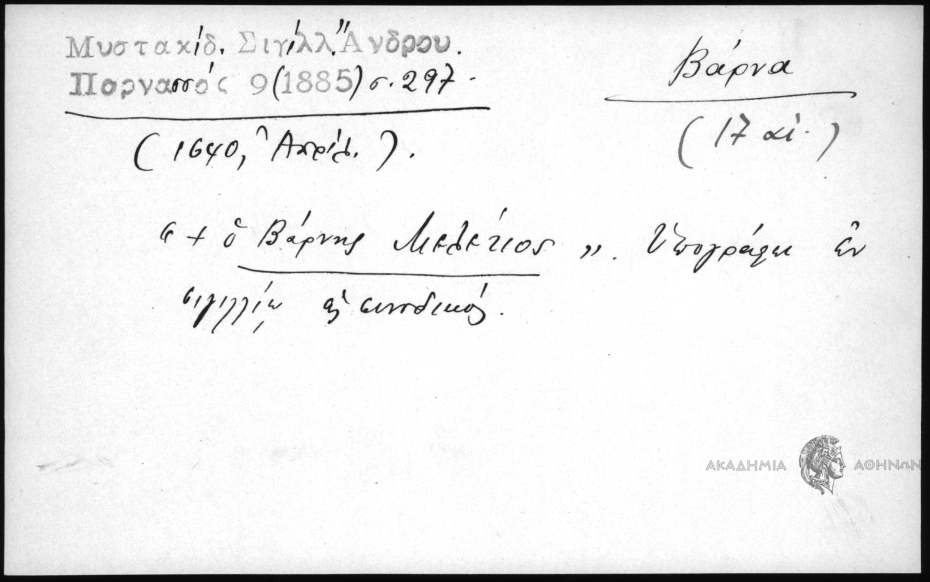 Μυστακίδ. Σιγίλλ. Ἄνδρου.
Παρνασσός 9 (1885) σ. 297.
Βάρνα
(1640, Ἀπρίλ.).
(17 αἰ.)
"+ ὁ Βάρνης Μελέτιος". Ὑπογράφει ἐν
σιγιλλίῳ ὡς συνοδικός.
ΑΚΑΔΗΜΙΑ ΑΘΗΝΩΝ